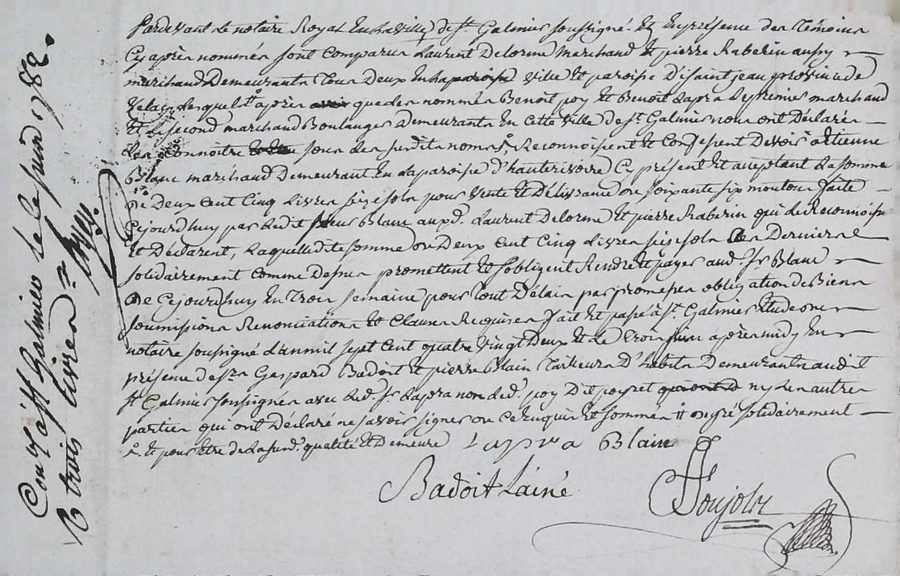 Pardevant le notaire Royal en la ville de St. Galmier soussigné et en présence des témoins
Cy après nommés sont comparus Laurent Delorme marchand et pierre Raberin aussy
marchand Demeurants tous Deux en la paroisse ville et paroisse De saint jean province de
Velay lesquels après que des nommés Benoit poy et Benoit Lapra le premier marchand
et le second marchand Boulanger Demeurants en cette ville de St. Galmier nous ont Déclaré
les Connoitre sous les susdits noms Reconnoissent et Confessent Devoir a Etienne
Blanc marchand Demeurant en la paroisse d'hauterivoire Cy présent et acceptant la somme
De Deux Cent Cinq Livres six sols pour vente et Délivrance de soixante six moutons faite
Cejourdhuy par ledit sieur Blanc auxd. Laurent Delorme et pierre Raberin qui le Reconnoissent
et Déclarent, Laquelle dite somme De Deux Cent Cinq Livres six sols Ces Derniers
solidairement Comme dessus promettent et s'obligent Rendre et payer aud. Sr Blanc
De Cejourdhuy en Trois semaines pour tout Délais par promesses obligation de Biens
soumissions Renonciations et Clauses Requises fait et passé a St. Galmier Etude du
notaire soussigné L'an mil sept Cent quatre vingt Deux et le Trois juin après midy En
présence de srs Gaspard Badoit et pierre Blain Tailleurs D'habits Demeurants aud. lt
St. Galmier soussignés avec led. Sr Lapra non led. poy Dit poyret ny les autres
parties qui ont Déclaré ne savoir signer De Ce Enquis et sommés solidairement
et pour être de la susd. qualité et Demeure Lapra Blain
Badoit L'ainé
Ponjolz
Con. a St Galmier le 6 juin 1782.
R trois livres